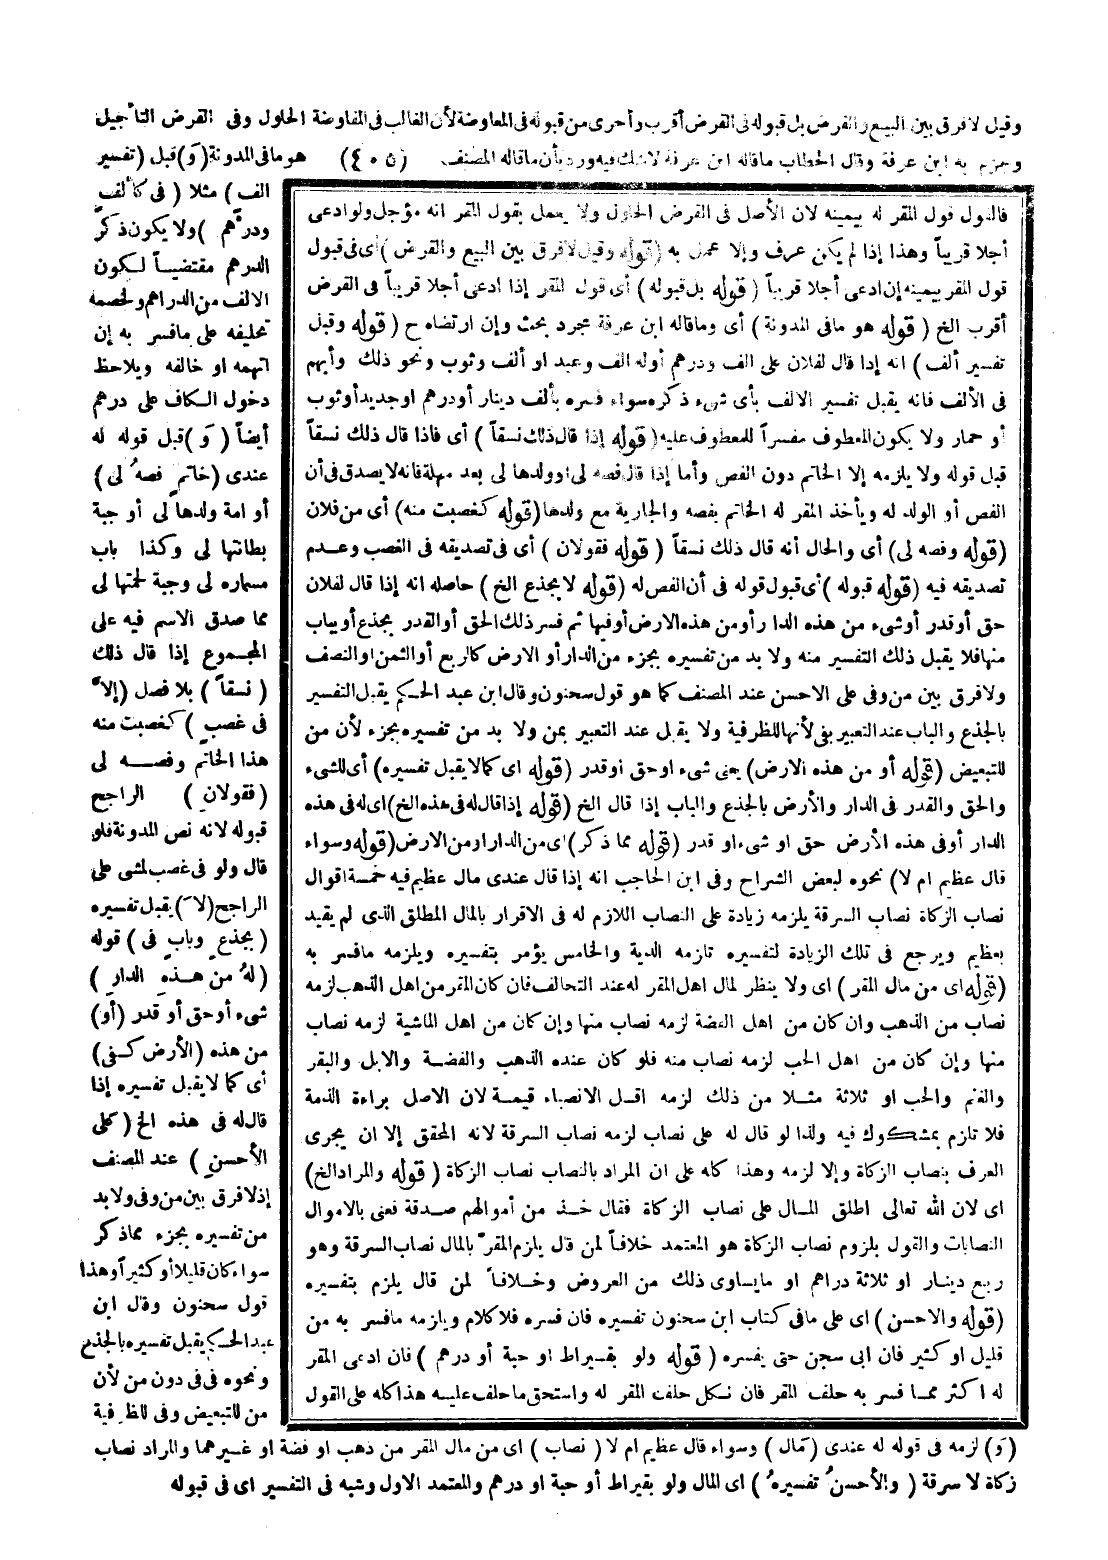 وقيل لا فرق بين البيع والقرض بل قبوله فى القرض أقرب وأحرى من قبوله فى المعاوضة لأن الغالب فى المفاوضة الحلول وفى القرض التأجيل
وجزم به ابن عرفة وقال الحطاب ماقاله ابن عرفة لاشك فيه ورد بأن ماقاله المصنف (٤٠٥) هو مافى المدونة (وَ) قبل (تفسير
الف) مثلا (فى كألفٍ
ودرهم) ولا يكون ذكر
الدرهم مقتضياً لكون
الالف من الدراهم ولخصمه
تحليفه على مافسر به إن
اتهمه او خالفه ويلاحظ
دخول الكاف على درهم
أيضاً (وَ) قبل قوله له
عندى (خاتمٍ فصهُ لى)
أو امة ولدها لى أو جبة
بطانتها لى وكذا باب
مسماره لى وجبة لحمتها لى
مما صدق الاسم فيه على
المجموع إذا قال ذلك
(نسقاً) بلا فصل (إلاَّ
فى غصبٍ) كغصبت منه
هذا الخاتم وفصه لى
(فقولان) الراجح
قبوله لانه نص المدونة فلو
قال ولو فى غصب لمشى على
الراجح (لاَ) يقبل تفسيره
(بجذعٍ وبابٍ فى) قوله
(لهُ من هذهِ الدارِ)
شىء أو حق أو قدر (أو)
من هذه (الأرض كفى)
أى كما لا يقبل تفسيره إذا
قال له فى هذه الخ (على
الأحسنِ) عند المصنف
إذ لا فرق بين من وفى ولا بد
من تفسيره بجزء مما ذكر
سواء كان قليلا أو كثيراً وهذا
قول سحنون وقال ابن
عبد الحكم يقبل تفسيره بالجذع
ونحوه فى فى دون من لأن
من للتبعيض وفى للظرفية
فالقول قول المقر له بيمينه لان الأصل فى القرض الحلول ولا يعمل بقول المقر انه مؤجل ولو ادعى
أجلا قريباً وهذا إذا لم يكن عرف وإلا عمل به (قوله وقيل لا فرق بين البيع والقرض) أى فى قبول
قول المقر بيمينه إن ادعى أجلا قريباً (قوله بل قبوله) أى قول المقر إذا ادعى أجلا قريباً فى القرض
أقرب الخ (قوله هو مافى المدونة) أى وماقاله ابن عرفة مجرد بحث وإن ارتضاه ح (قوله وقبل
تفسير ألف) انه إذا قال لفلان على الف ودرهم أوله الف وعبد او ألف وثوب ونحو ذلك وأبهم
فى الألف فانه يقبل تفسير الالف بأى شىء ذكره سواء فسره بألف دينار أو درهم او جديد أو ثوب
أو حمار ولا يكون المعطوف مفسراً للمعطوف عليه (قوله إذا قال ذلك نسقاً) أى فاذا قال ذلك نسقاً
قبل قوله ولا يلزمه إلا الخاتم دون الفص وأما إذا قال فصه لى او ولدها لى بعد مهلة فانه لا يصدق فى أن
الفص أو الولد له ويأخذ المقر له الخاتم بفصه والجارية مع ولدها (قوله كغصبت منه) أى من فلان
(قوله وفصه لى) أى والحال أنه قال ذلك نسقاً (قوله فقولان) أى فى تصديقه فى الغصب وعدم
تصديقه فيه (قوله قبوله) أى قبول قوله فى أن الفص له (قوله لا بجذع الخ) حاصله انه إذا قال لفلان
حق أو قدر أو شىء من هذه الدار أو من هذه الارض أو فيها ثم فسر ذلك الحق أو القدر بجذع أو بباب
منها فلا يقبل ذلك التفسير منه ولا بد من تفسيره بجزء من الدار أو الارض كالربع أو الثمن او النصف
ولا فرق بين من وفى على الاحسن عند المصنف كما هو قول سحنون وقال ابن عبد الحكم يقبل التفسير
بالجذع والباب عند التعبير بفى لأنها للظرفية ولا يقبل عند التعبير بمن ولا بد من تفسيره بجزء لأن من
للتبعيض (قوله أو من هذه الارض) يعنى شىء او حق او قدر (قوله اى كما لا يقبل تفسيره) أى للشىء
والحق والقدر فى الدار والأرض بالجذع والباب إذا قال الخ (قوله إذا قال له فى هذه الخ) اى له فى هذه
الدار أو فى هذه الأرض حق او شىء او قدر (قوله مما ذكر) اى من الدار او من الارض (قوله وسواء
قال عظيم ام لا) نحوه لبعض الشراح وفى ابن الحاجب انه إذا قال عندى مال عظيم فيه خمسة اقوال
نصاب الزكاة نصاب السرقة يلزمه زيادة على النصاب اللازم له فى الاقرار بالمال المطلق الذى لم يقيد
بعظيم ويرجع فى تلك الزيادة لتفسيره تلزمه الدية والخامس يؤمر بتفسيره ويلزمه مافسر به
(قوله اى من مال المقر) اى ولا ينظر لمال اهل المقر له عند التحالف فان كان المقر من اهل الذهب لزمه
نصاب من الذهب وان كان من اهل الفضة لزمه نصاب منها وإن كان من اهل الماشية لزمه نصاب
منها وإن كان من اهل الحب لزمه نصاب منه فلو كان عنده الذهب والفضة والابل والبقر
والغنم والحب او ثلاثة مثلا من ذلك لزمه اقل الانصباء قيمة لان الاصل براءة الذمة
فلا تلزم بمشكوك فيه ولذا لو قال له على نصاب لزمه نصاب السرقة لانه المحقق إلا ان يجرى
العرف بنصاب الزكاة وإلا لزمه وهذا كله على ان المراد بالنصاب نصاب الزكاة (قوله والمراد الخ)
اى لان الله تعالى اطلق المال على نصاب الزكاة فقال خذ من أموالهم صدقة فعنى بالاموال
النصابات والقول بلزوم نصاب الزكاة هو المعتمد خلافاً لمن قال يلزم المقرّ بالمال نصاب السرقة وهو
ربع دينار او ثلاثة دراهم او مايساوى ذلك من العروض وخلافاً لمن قال يلزم بتفسيره
(قوله والاحسن) اى على مافى كتاب ابن سحنون تفسيره فان فسره فلا كلام ويلزمه مافسر به من
قليل او كثير فان ابى سجن حتى يفسره (قوله ولو بقيراط او حبة أو درهم) فان ادعى المقر
له اكثر مما فسر به حلف المقر فان نكل حلف المقر له واستحق ماحلف عليه هذا كله على القول
(وَ) لزمه فى قوله له عندى (مال) وسواء قال عظيم ام لا (نصاب) اى من مال المقر من ذهب او فضة او غيرهما والمراد نصاب
زكاة لا سرقة (والأحسنُ تفسيرهُ) اى المال ولو بقيراط أو حبة او درهم والمعتمد الاول وشبه فى التفسير اى فى قبوله